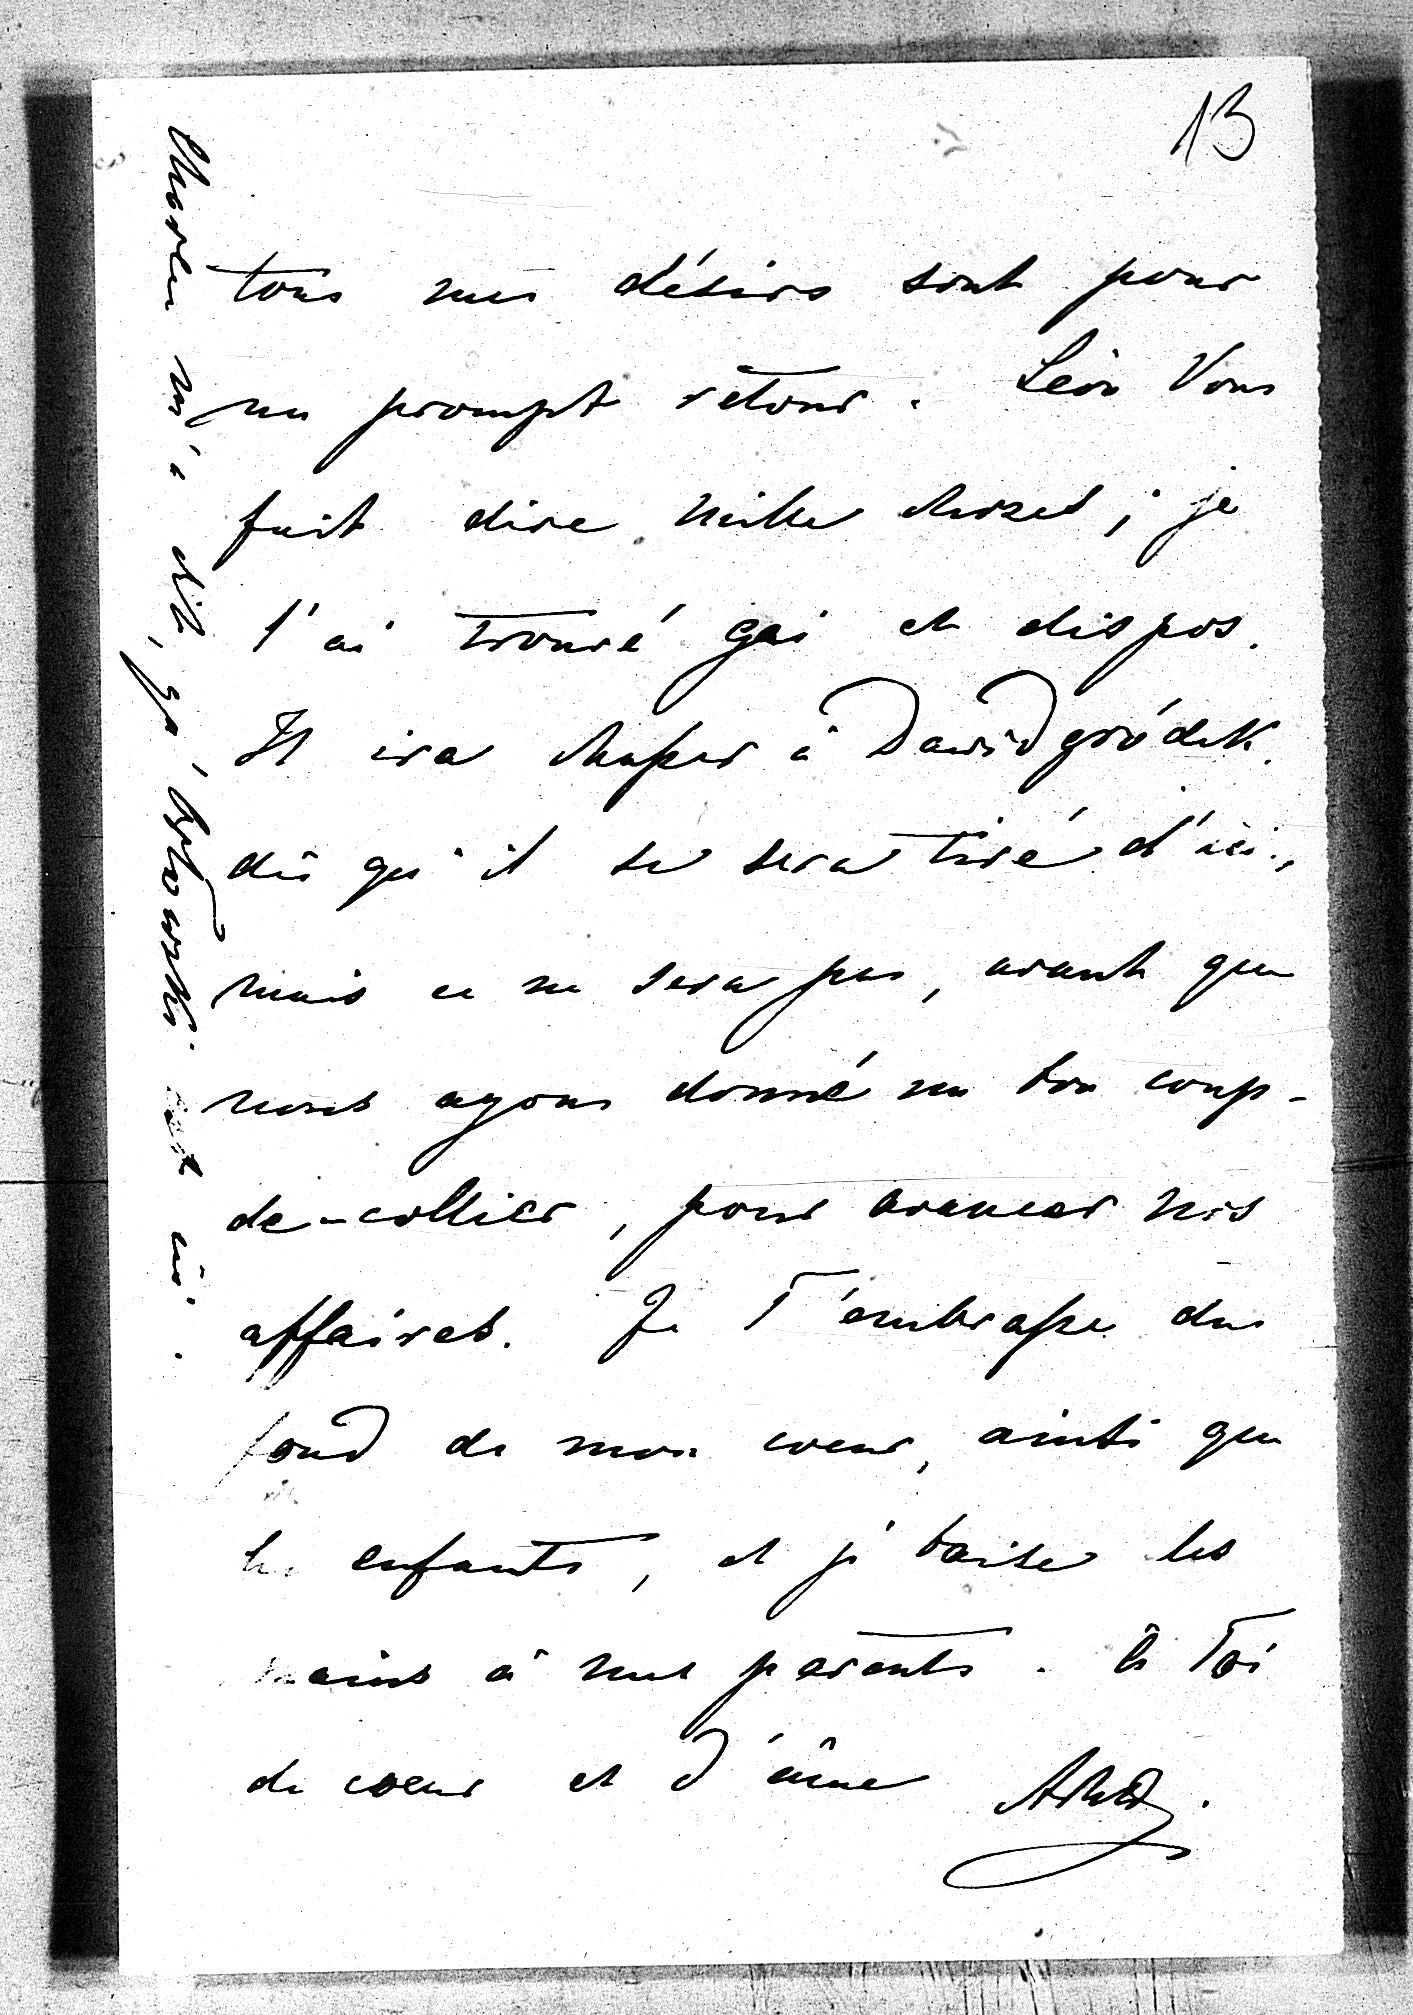 13
tous mes désirs sont pour
un prompt retour. Léon Vous
fait dire mille choses; je
l'ai trouvé gai et dispos.
Il ira chasser à Dawidgródek.
dès qu'il se sera tiré d'ici.,
mais ce ne sera pas, avant que
nous ayons donné un bon coup-
de-collier, pour avancer nos
affaires. Je T'embrasse du
fond de mon coeur, ainsi que
les enfants, et je baise les
mains à nos parents. à Toi
de coeur et d'âme
Charles m'a dit, qu' est ici.